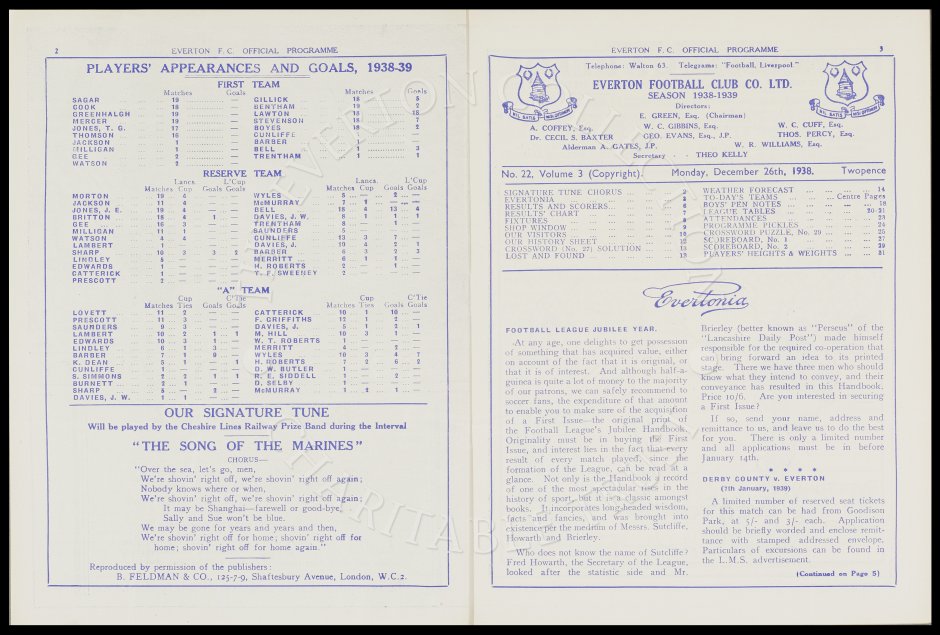 2
EVERTON F.C. OFFICIAL PROGRAMME
PLAYERS' APPEARANCES AND GOALS, 1938-39
FIRST TEAM
Matches Goals Matches Goals
SAGAR 19 GILLICK 18 5
COOK 18 BENTHAM 19 2
GREENHALGH 19 LAWTON 18 18
MERCER 19 STEVENSON 18 7
JONES, T. G. 17 BOYES 18 2
THOMSON 16 CUNLIFFE 1
JACKSON 1 BARBER 1
MILLIGAN 1 1 BELL 1 3
GEE 2 TRENTHAM 1 1
WATSON 2
RESERVE TEAM
Lancs. L'Cup Lancs. L'Cup
Matches Cup Goals Goals Matches Cup Goals Goals
MORTON 19 4 WYLES 5 2
JACKSON 11 4 McMURRAY
JONES, J. E. 19 4 BELL 18 4 13 4
BRITTON 18 4 1 DAVIES, J. W. 8 1 1 1
GEE 16 3 TRENTHAM
MILLIGAN 11 1 SAUNDERS 5
WATSON 4 4 CUNLIFFE 13 3 7
LAMBERT 1 DAVIES, J. 19 4 2 1
SHARP 10 3 3 2 BARBER
LINDLEY 5 MERRITT 6 1 1
EDWARDS 1 H. ROBERTS 2 1
CATTERICK 1 T. F. SWEENEY 2
PRESCOTT 2
"A" TEAM
Cup C'Tie Cup C'Tie
Matches Ties Goals Goals Matches Ties Goals Goals
LOVETT 11 2 CATTERICK 10 1 10
PRESCOTT 11 3 F. GRIFFITHS 12 1 2
SAUNDERS 9 3 DAVIES, J. 5 1 2 1
LAMBERT 10 2 2 1 M. HILL 10 3 1
EDWARDS 10 3 1 W. T. ROBERTS 1
LINDLEY 6 1 3 MERRITT 4 2
BARBER 7 1 9 WYLES 10 3 4 7
K. DEAN 5 1 1 H. ROBERTS 7 2 6 2
CUNLIFFE 1 D. W. BUTLER 1
S. SIMMONS 2 2 1 1 R. E. SIDDELL 1 2
BURNETT 2 1 D. SELBY 1
SHARP 5 2 McMURRAY 1 2 1
DAVIES, J. W. 1 1
OUR SIGNATURE TUNE
Will be played by the Cheshire Lines Railway Prize Band during the Interval
"THE SONG OF THE MARINES"
CHORUS—
"Over the sea, let's go, men,
We're shovin' right off, we're shovin' right off again;
Nobody knows where or when,
We're shovin' right off, we're shovin' right off again;
It may be Shanghai—farewell or good-bye,
Sally and Sue won't be blue.
We may be gone for years and years and then,
We're shovin' right off for home; shovin' right off for
home; shovin' right off for home again."
Reproduced by permission of the publishers:
B. FELDMAN & CO., 125-7-9, Shaftesbury Avenue, London, W.C.2.
EVERTON F.C. OFFICIAL PROGRAMME
3
Telephone: Walton 63. Telegrams: "Football, Liverpool."
EVERTON FOOTBALL CLUB CO. LTD.
SEASON 1938-1939
Directors:
E. GREEN, Esq. (Chairman)
A. COFFEY, Esq. W. C. GIBBINS, Esq. W. C. CUFF, Esq.
Dr. CECIL S. BAXTER GEO. EVANS, Esq., J.P. THOS. PERCY, Esq.
Alderman A. GATES, J.P. W. R. WILLIAMS, Esq.
Secretary - - THEO KELLY
NIL SATIS NISI OPTIMUM
NIL SATIS NISI OPTIMUM
No. 22, Volume 3 (Copyright). Monday, December 26th, 1938. Twopence
SIGNATURE TUNE CHORUS ... 2
EVERTONIA 3
RESULTS AND SCORERS... 6
RESULTS' CHART 7
FIXTURES 8
SHOP WINDOW 9
OUR VISITORS 10
OUR HISTORY SHEET 12
CROSSWORD (No. 27) SOLUTION 13
LOST AND FOUND 13
WEATHER FORECAST 14
TO-DAY'S TEAMS Centre Pages
BOYS' PEN NOTES 18
LEAGUE TABLES 20-21
ATTENDANCES 23
PROGRAMME PICKLES 24
CROSSWORD PUZZLE, No. 29 25
SCOREBOARD, No. 1 27
SCOREBOARD, No. 2 29
PLAYERS' HEIGHTS & WEIGHTS 31
Evertonia
FOOTBALL LEAGUE JUBILEE YEAR.
At any age, one delights to get possession
of something that has acquired value, either
on account of the fact that it is original, or
that it is of interest. And although half-a-
guinea is quite a lot of money to the majority
of our patrons, we can safely recommend to
soccer fans, the expenditure of that amount
to enable you to make sure of the acquisition
of a First Issue—the original print of
the Football League's Jubilee Handbook.
Originality must be in buying the First
Issue, and interest lies in the fact that every
result of every match played, since the
formation of the League, can be read at a
glance. Not only is the Handbook a record
of one of the most spectacular rises in the
history of sport, but it is a classic amongst
books. It incorporates long-headed wisdom,
facts and fancies, and was brought into
existence per the medium of Messrs. Sutcliffe,
Howarth and Brierley.
Who does not know the name of Sutcliffe?
Fred Howarth, the Secretary of the League,
looked after the statistic side and Mr.
Brierley (better known as "Perseus" of the
"Lancashire Daily Post") made himself
responsible for the required co-operation that
can bring forward an idea to its printed
stage. There we have three men who should
know what they intend to convey, and their
conveyance has resulted in this Handbook,
Price 10/6. Are you interested in securing
a First Issue?
If so, send your name, address and
remittance to us, and leave us to do the best
for you. There is only a limited number
and all applications must be in before
January 14th.
* * * *
DERBY COUNTY v. EVERTON
(7th January, 1939)
A limited number of reserved seat tickets
for this match can be had from Goodison
Park, at 5/- and 3/- each. Application
should be briefly worded and enclose remit-
tance with stamped addressed envelope.
Particulars of excursions can be found in
the L.M.S. advertisement.
(Continued on Page 5)